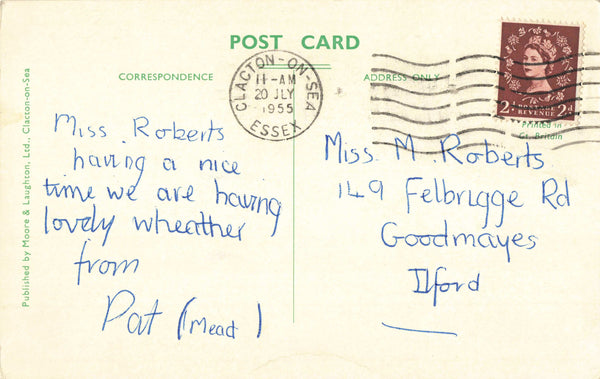 POST CARD
CORRESPONDENCE
ADDRESS ONLY
CLACTON-ON-SEA
11-AM
20 JLY
1955
ESSEX
POSTAGE
REVENUE
2D 2D
Printed in
Gt. Britain
Miss Roberts
having a nice
time we are having
lovely wheather
from
Pat (Mead)
Miss. M. Roberts
149 Felbrigge Rd
Goodmayes
Ilford
Published by Moore & Laughton, Ltd., Clacton-on-Sea